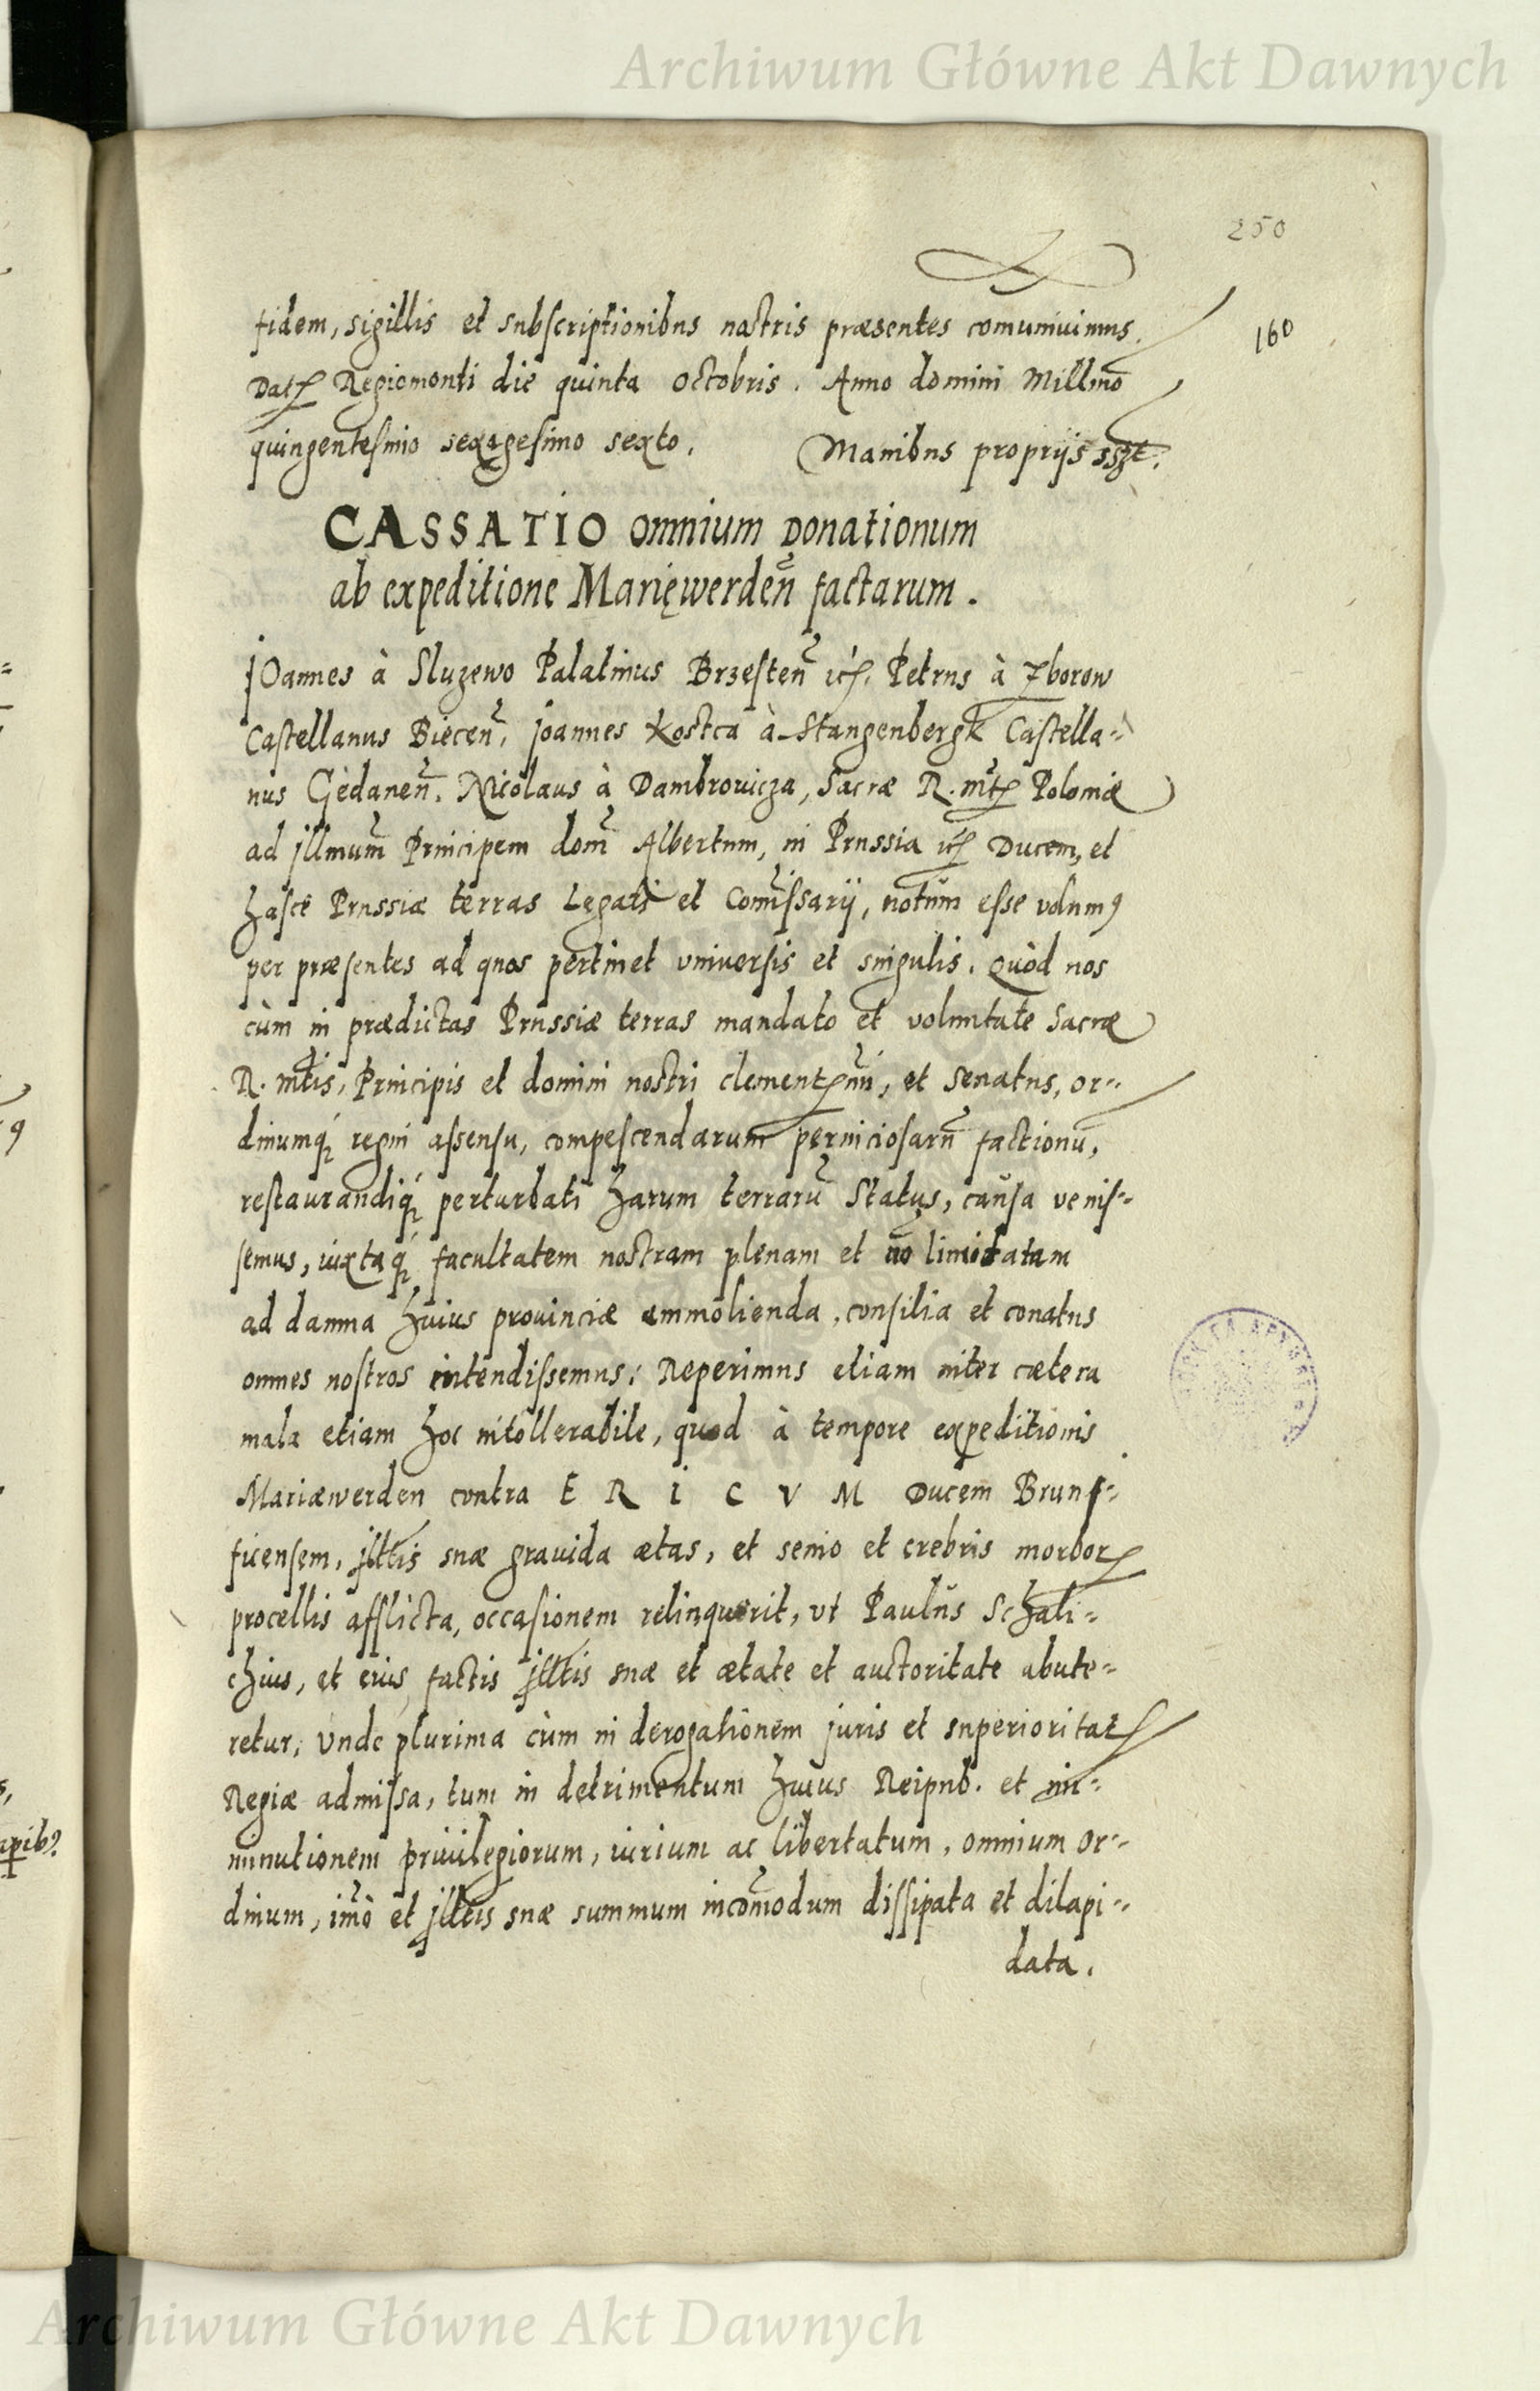 Archiwum Główne Akt Dawnych
250
160
fidem, sigillis et subscriptionibus nostris præsentes comuniuimus.
Datꝭ Regiomonti die quinta octobris. Anno domini Millmo
quingentesimo sexagesimo sexto. Manibus proprijs
CASSATIO omnium Donationum
ab expeditione Marięwerdeñ factarum.
JOannes à Sluzewo Palatinus Brzesteñ ꝛcꝭ. Petrus à Zborow
Castellanus Bieceñ, Joannes Kostca à Stangenbergk Castella=
nus Gedaneñ. Nicolaus à Dambrouicza, Sacræ R. mtꝭ Poloniæ
ad jllmum Principem dom̃ Albertum, in Prussia ꝛcꝭ Ducem, et
hasce Prussiæ terras Legati et Com̃issarij, notum esse volumꝰ
per præsentes ad quos pertinet vniuersis et singulis. Quòd nos
cùm in prædictas Prussiæ terras mandato et voluntate Sacræ
R. mtis, Principis et domini nostri clementꝭmi, et Senatus, or=
dinumq́ꝫ regni assensu, compescendarum perniciosarũ factionũ,
restaurandiq́ꝫ perturbati harum terrarũ Status, causa venis=
semus, iuxtaq́ꝫ facultatem nostram plenam et nõ limitatam
ad damna huius prouinciæ ammolienda, consilia et conatus
omnes nostros intendissemus: Reperimus etiam inter cætera
mala etiam hoc intollerabile, quod à tempore expeditionis
Mariæwerden contra E R I C V M Ducem Bruns=
uicensem, jlltis suæ grauida ætas, et senio et crebris morborꝭ
procellis afflicta, occasionem relinquerit, vt Paulus Schali=
chius, et eius factis jlltis suæ et ætate et auctoritate abute=
retur, Vnde plurima cùm in derogationem juris et superioritatꝭ
Regiæ admissa, tum in detrimentum huius Reipub. et im=
minutionem priuilegiorum, iurium ac libertatum, omnium or=
dinum, imò et jlltis suæ summum incõmodum dissipata et dilapi=
data.
Archiwum Główne Akt Dawnych